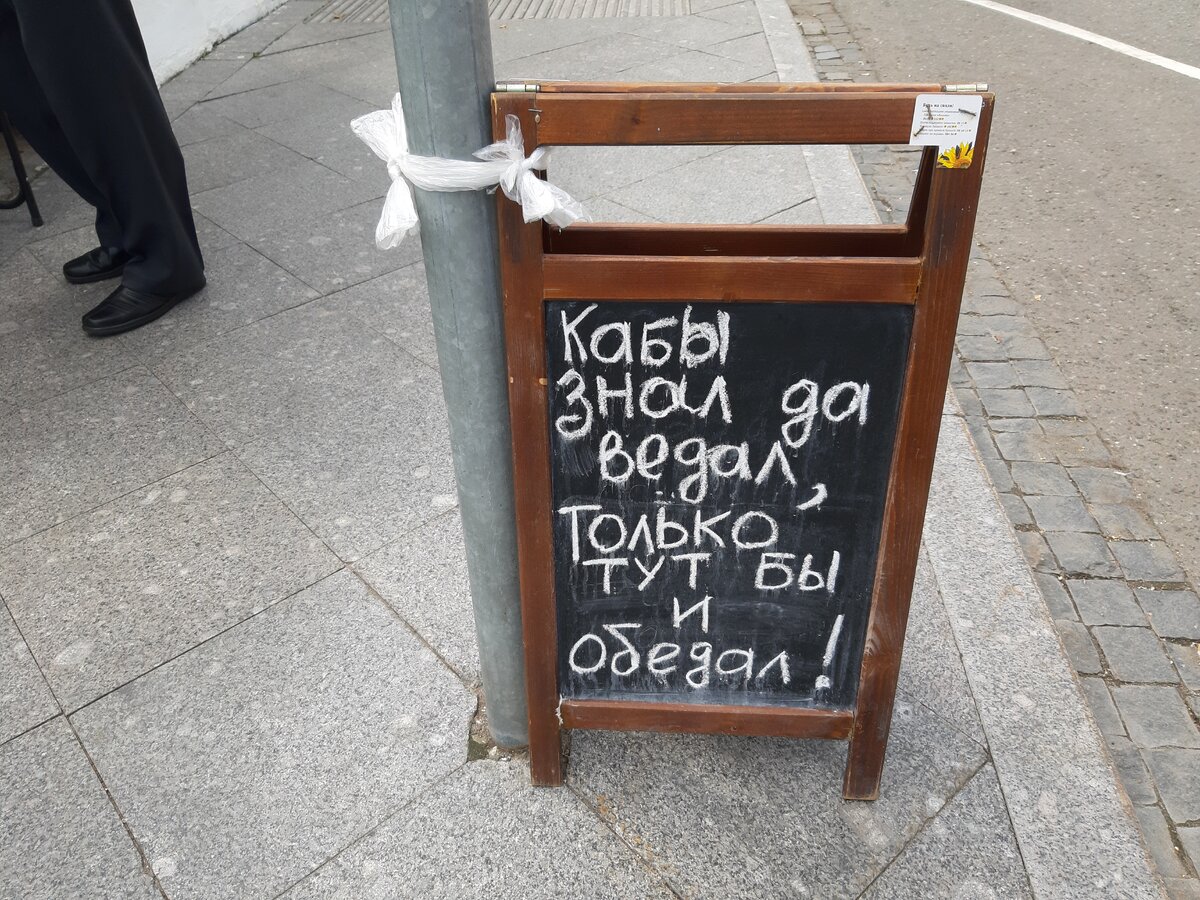 Кабы
знал да
ведал,
только
тут бы
и
обедал!